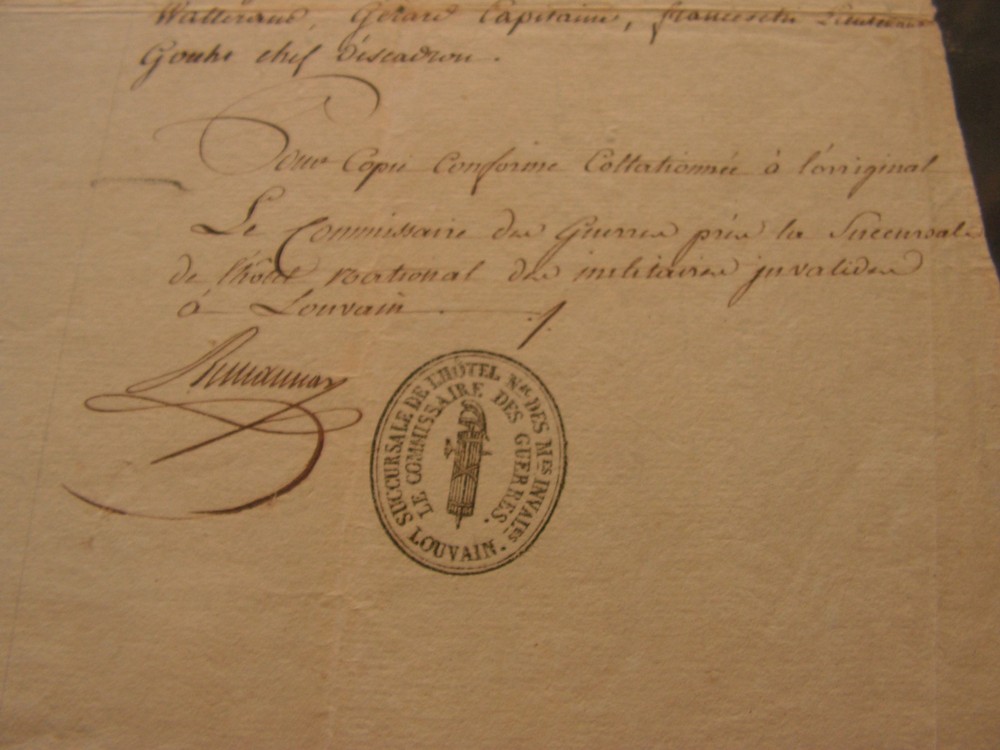 Gérard Capitaine,
chef d'escadron.
Pour Copie Conforme Collationnée à l'original
Le Commissaire des Guerres près la Succursale
de l'hôtel national des militaires invalides
à Louvain
SUCCURSALE DE L'HÔTEL Nal. DES Mres INVALes.
LE COMMISSAIRE DES GUERRES.
LOUVAIN.